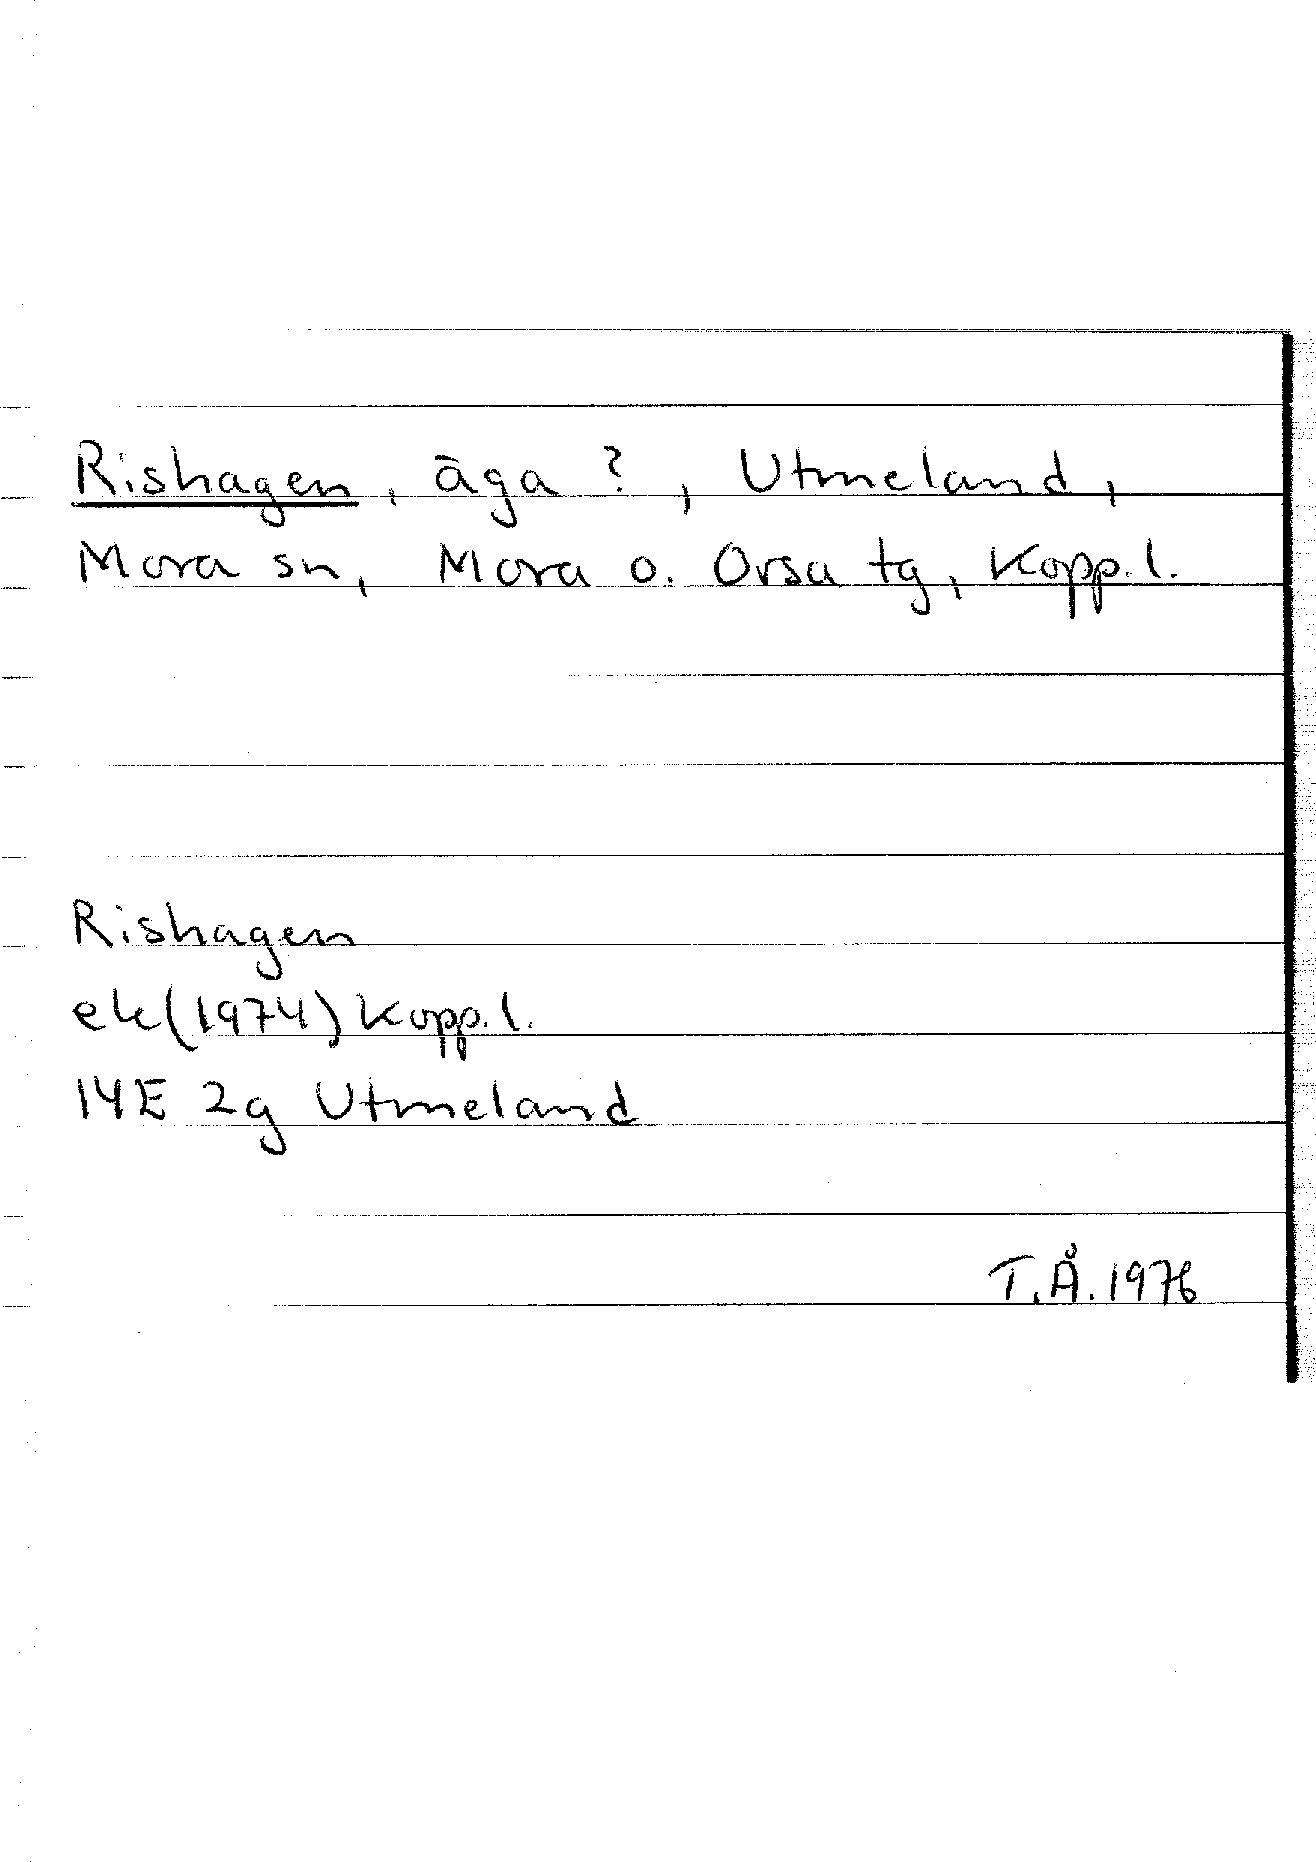 Rishagen, äga ?, Utmeland,
Mora sn, Mora o. Orsa tg, Kopp. l.
Rishagen
ek(1974) Kopp. l.
14E 2g Utmeland
T.Å. 1976